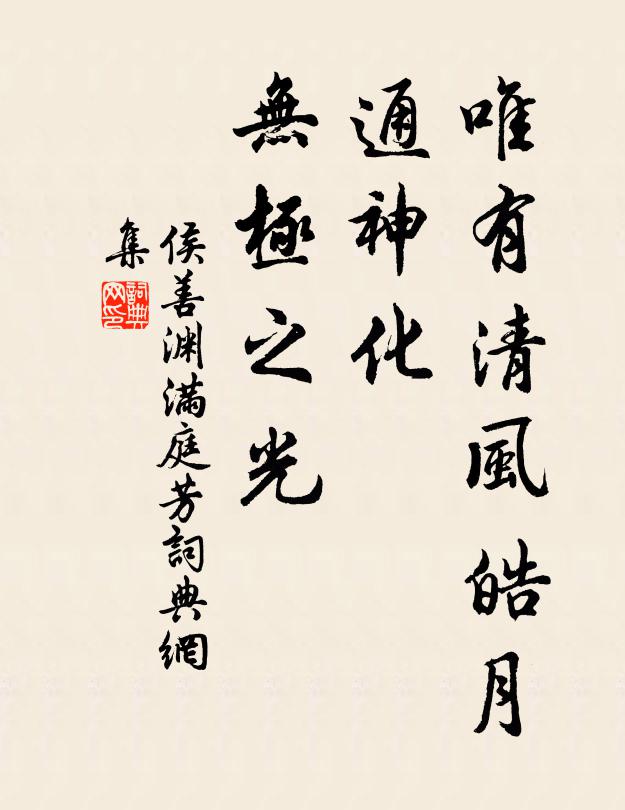 唯有清風皓月
通神化
無極之光
侯善渊滿庭芳詞典網
集
詞典
网印